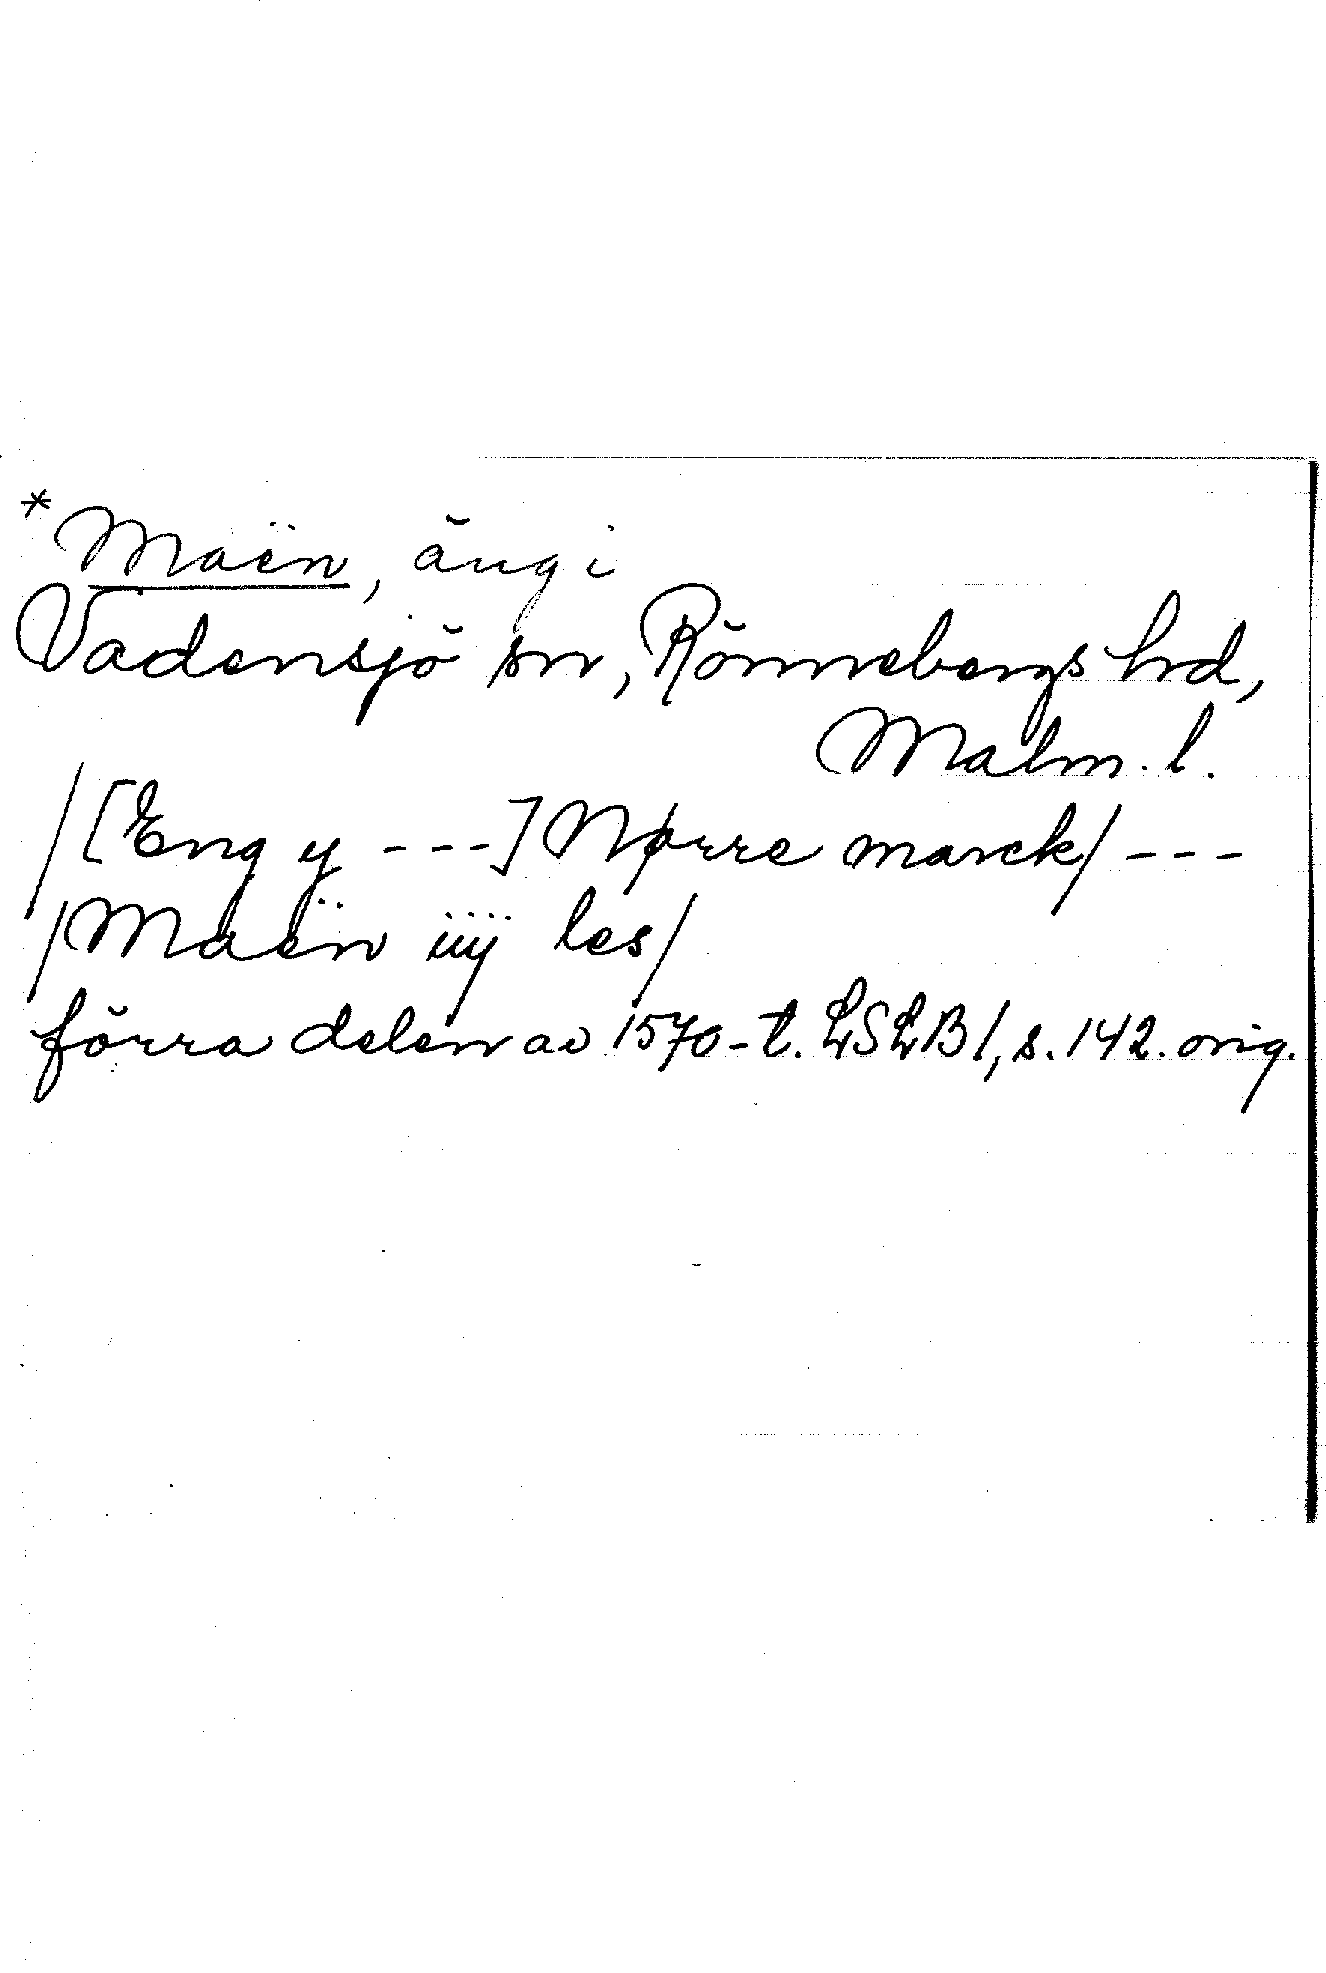 *Maën, äng i
Vadensjö sn, Rönnebergs hd,
Malm. l.
/[Eng y ---] Nørre marck/ ---
/Maën iiij les/
förra delen av 1570-t. LSLB 1, s. 142. orig.